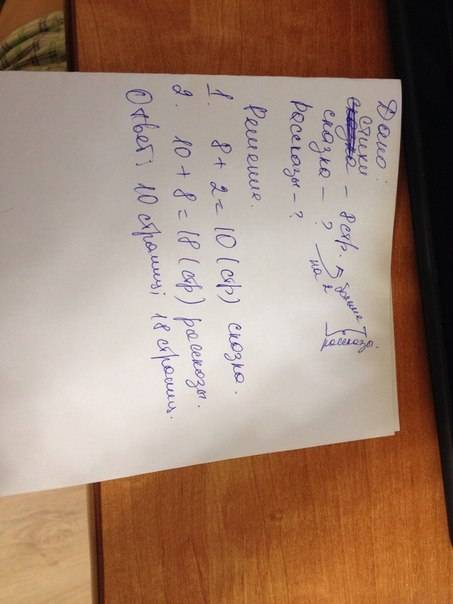 Дано:
стихи - 8 стр.
сказка - ? на 2 больше
рассказы - ? рассказы.
Решение.
1. 8 + 2 = 10 (стр) сказка.
2. 10 + 8 = 18 (стр) рассказы.
Ответ: 10 страниц; 18 страниц.